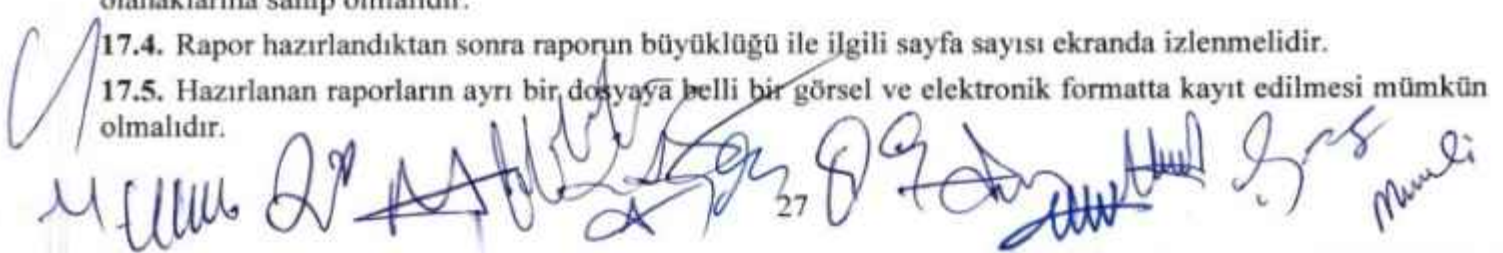 olanaklarına sahip olmalıdır.
17.4. Rapor hazırlandıktan sonra raporun büyüklüğü ile ilgili sayfa sayısı ekranda izlenmelidir.
17.5. Hazırlanan raporların ayrı bir dosyaya belli bir görsel ve elektronik formatta kayıt edilmesi mümkün
olmalıdır.
27